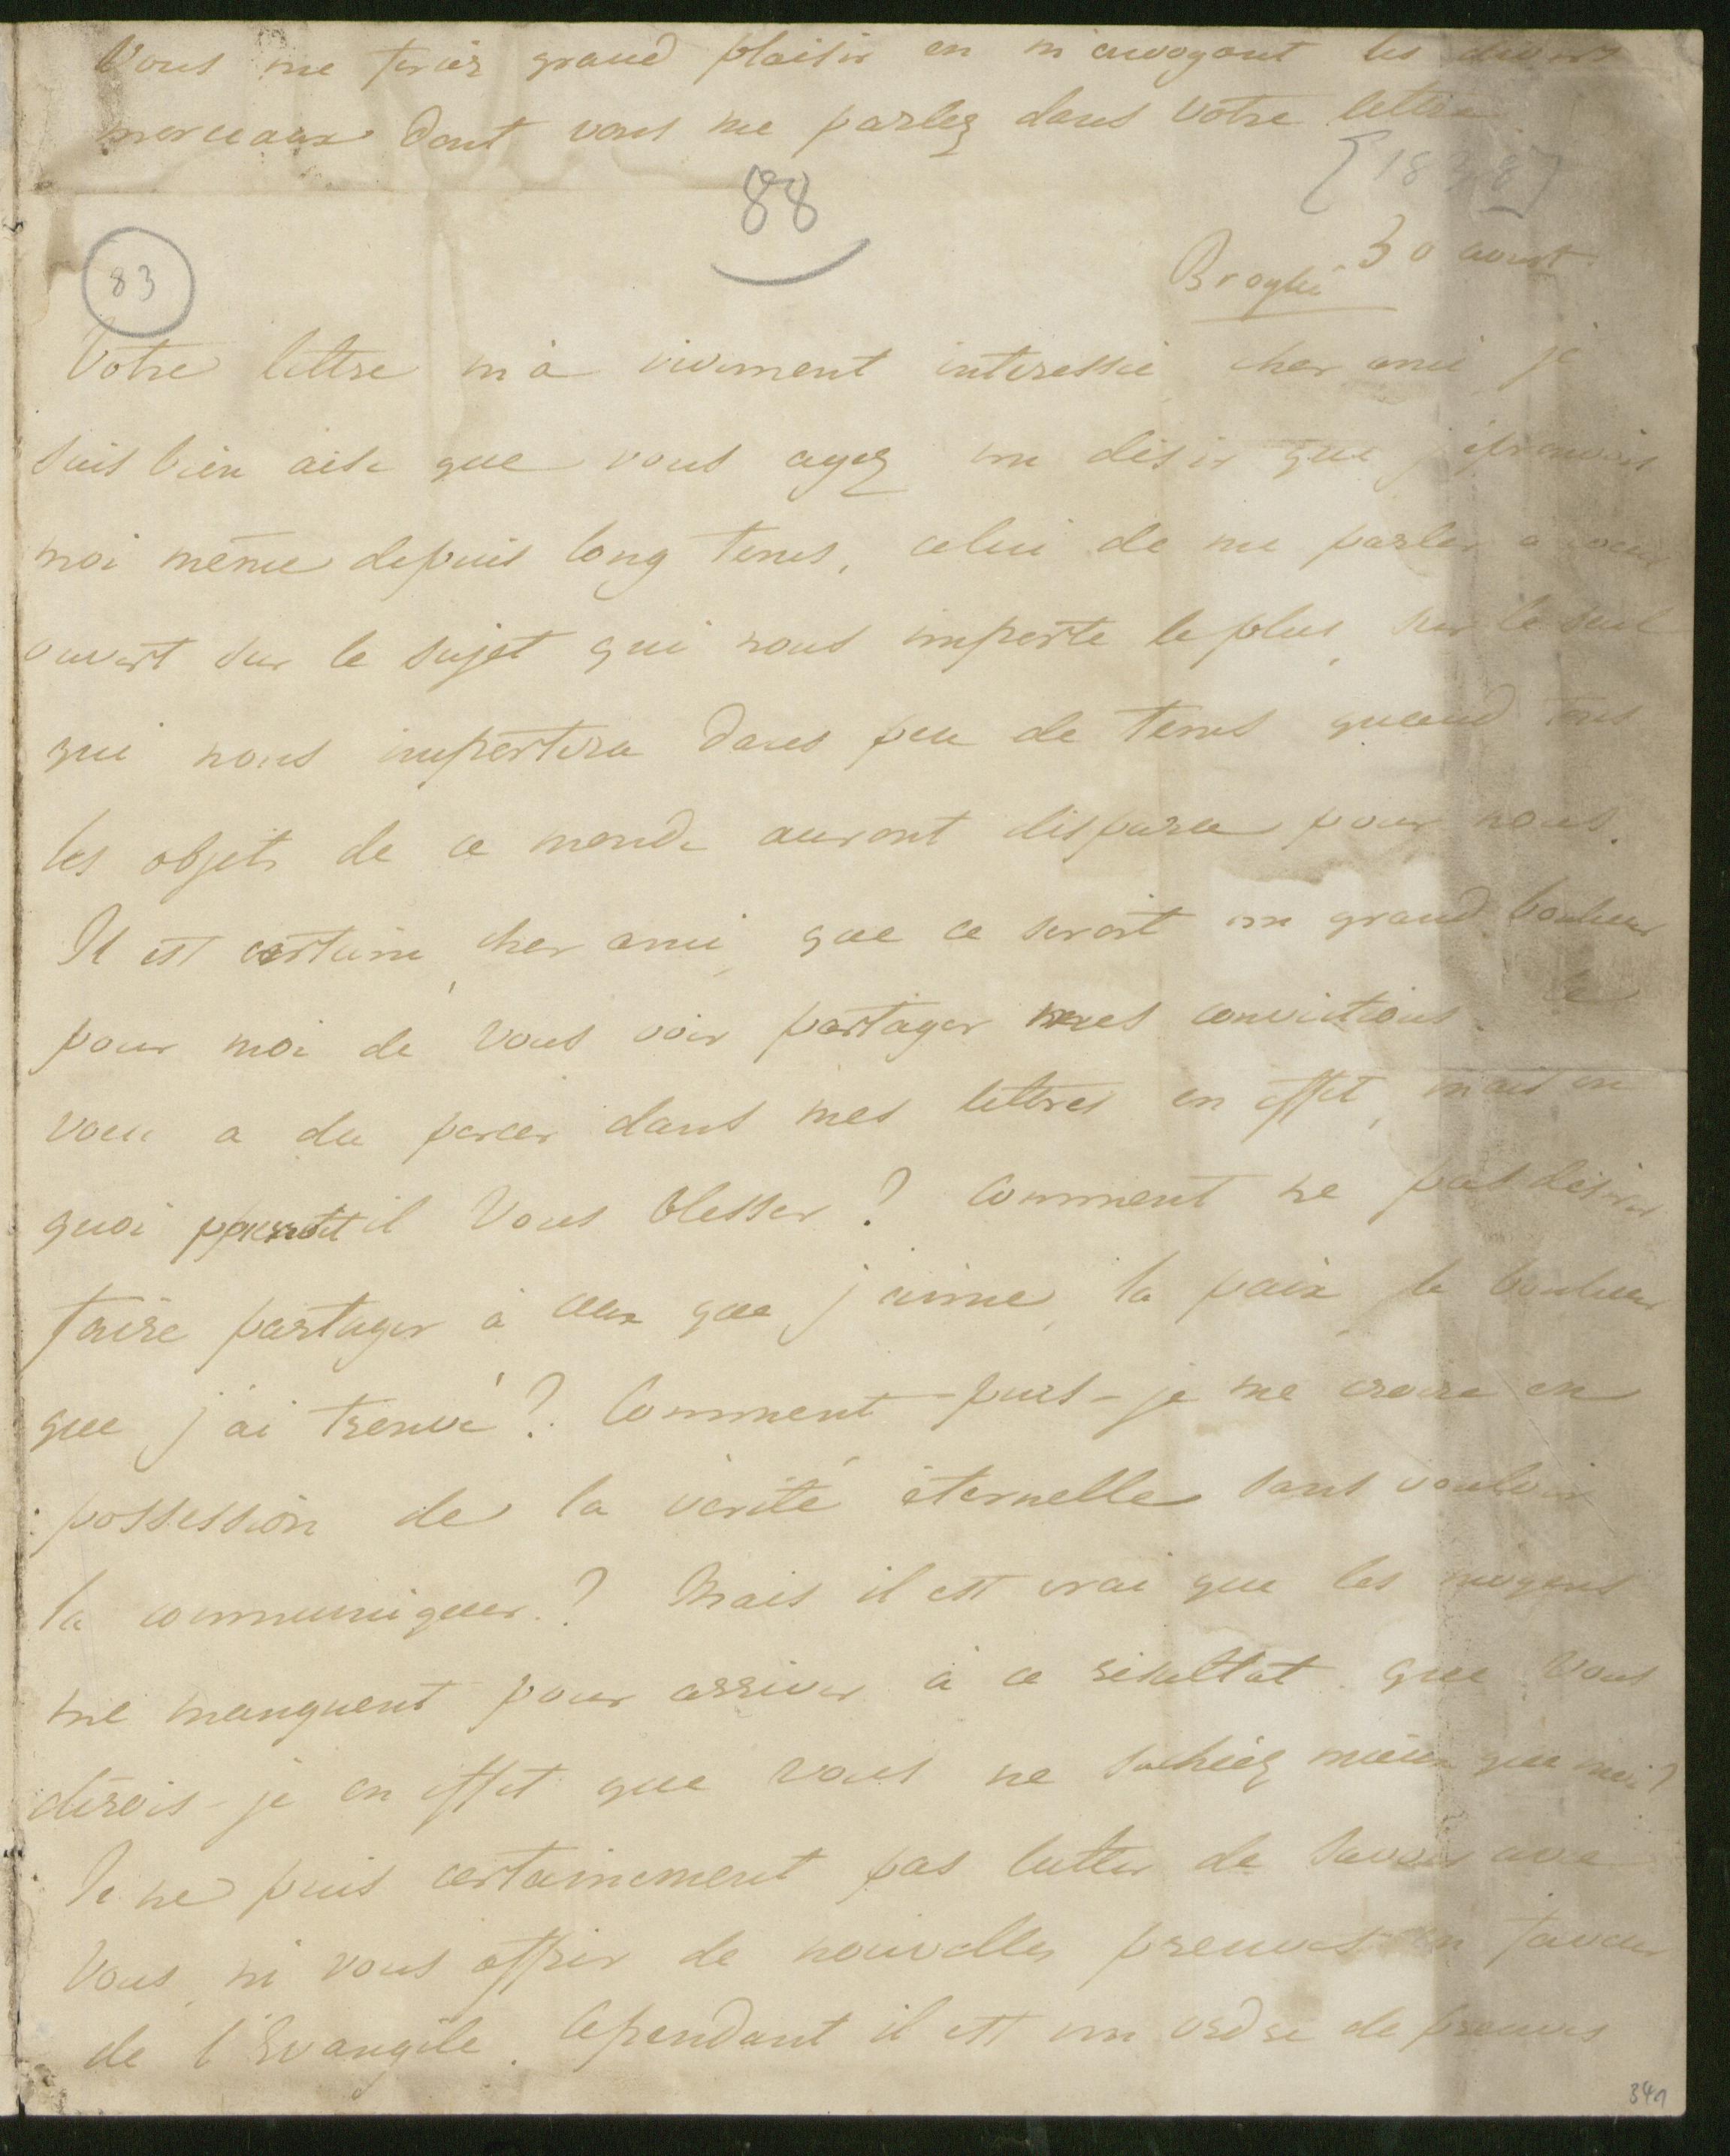 Vous me feriez grand plaisir en m'envoyant les divers
morceaux dont vous me parlez dans votre lettre
[1838]
88
83
Broglie 30 aout
Votre lettre m'a vivement interessée cher ami, je
suis bien aise que vous ayez un desir que j'éprouvais
moi même depuis long tems, celui de me parler a coeur
ouvert sur le sujet qui nous importe le plus, sur le seul
qui nous importera dans peu de tems quand tous
les objets de ce monde auront disparu pour nous.
Il est certain, cher ami, que ce seroit un grand bonheur
pour moi de vous voir partager mes convictions. Ce
voeu a du percer dans mes lettres en effet, mais en
quoi pourroit il vous blesser? Comment ne pas désirer
faire partager à ceux que j'aime, la paix, le bonheur
que j'ai trouvé? Comment puis-je me croire en
possession de la vérité éternelle sans vouloir
la communiquer? Mais il est vrai que les moyens
me manquent pour arriver à ce résultat. que vous
dirois-je en effet que vous ne sachiez mieux que moi?
Je ne puis certainement pas lutter de savoir avec
vous, ni vous offrir de nouvelles preuves en faveur
de l'Evangile. Cependant il est un ordre de preuves
341